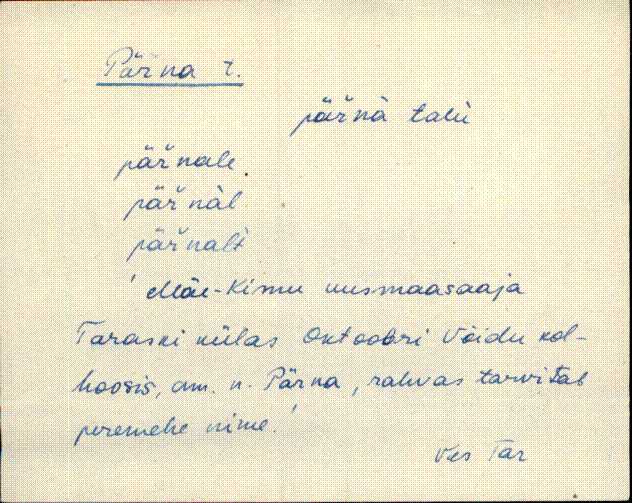 Pärna t.
pär̆nà talù
pär̆nale
pär̆nàl
pär̆nalt
' Mäe-Kirnu uusmaasaaja
Taraski külas Oktoobri Võidu kol-
hoosis, am. n. Pärna, rahvas tarvitab
peremehe nime.'
Vas Tar